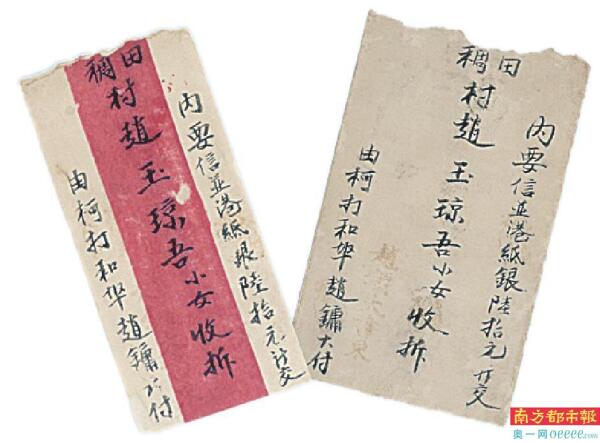 內要信並港紙銀陸拾元行交
田
稠村趙玉琼吾小女收拆
由柯打和华趙鏞付
內要信並港紙銀陸拾元行交
田
稠村趙玉琼吾小女收拆
由柯打和华趙鏞付
南方都市報
奥一网oeeee.com